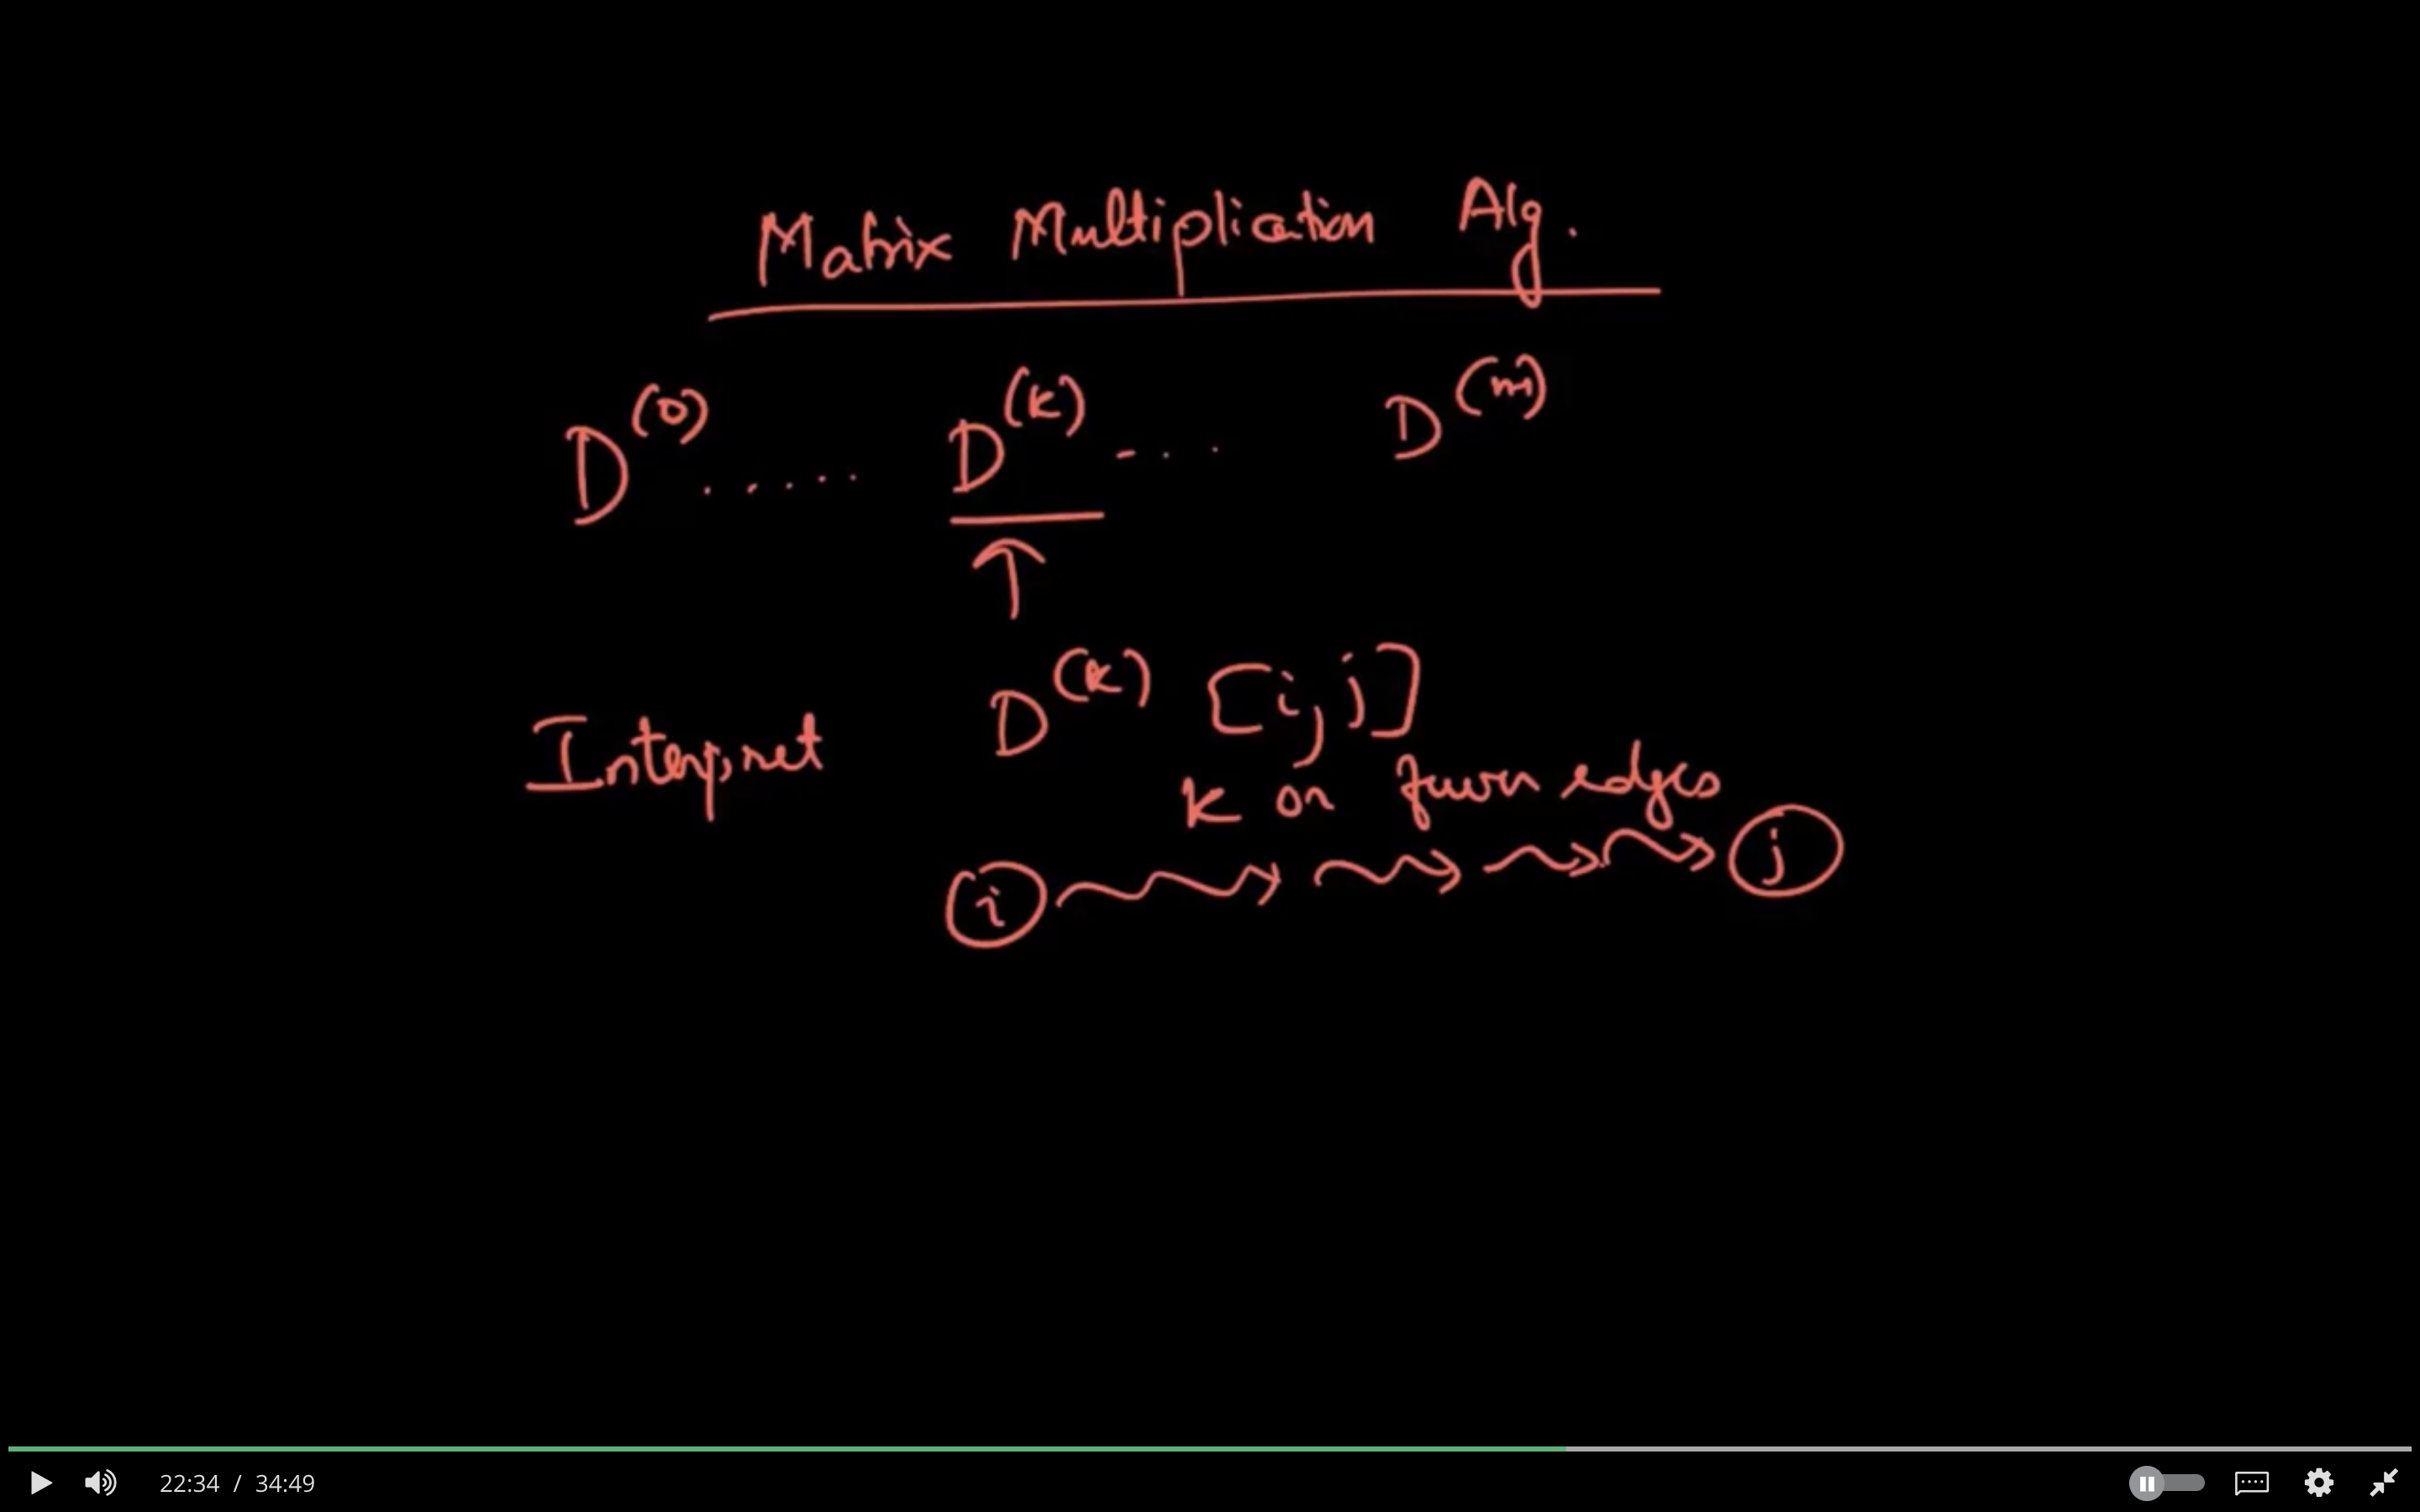 Matrix Multiplication Alg.
D^(0) ..... D^(k) - . . D^(m)
Interpret D^(k) [i,j]
k or fewer edges
i j
22:34 / 34:49